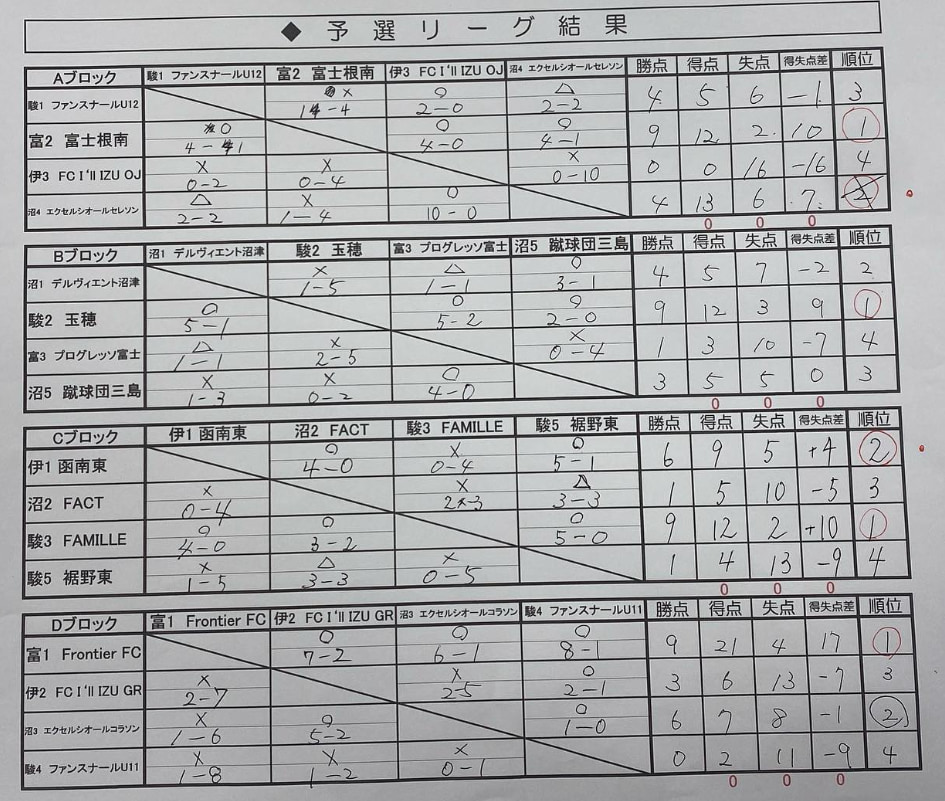 ◆ 予選リーグ結果
Aブロック 駿1 ファンスナールU12 富2 富士根南 伊3 FC I'll IZU OJ 沼4 エクセルシオールセレソン 勝点 得点 失点 得失点差 順位
駿1 ファンスナールU12 × ○ △
1-4 2-0 2-2 4 5 6 -1 3
富2 富士根南 ○ ○ ○
4-1 4-0 4-1 9 12 2 10 1
伊3 FC I'll IZU OJ × × ×
0-2 0-4 0-10 0 0 16 -16 4
沼4 エクセルシオールセレソン △ × ○
2-2 1-4 10-0 4 13 6 7 2
0 0 0
Bブロック 沼1 デルヴィエント沼津 駿2 玉穂 富3 プログレッソ富士 沼5 蹴球団三島 勝点 得点 失点 得失点差 順位
沼1 デルヴィエント沼津 × △ ○
1-5 1-1 3-1 4 5 7 -2 2
駿2 玉穂 ○ ○ ○
5-1 5-2 2-0 9 12 3 9 1
富3 プログレッソ富士 △ × ×
1-1 2-5 0-4 1 3 10 -7 4
沼5 蹴球団三島 × × ○
1-3 0-2 4-0 3 5 5 0 3
0 0 0
Cブロック 伊1 函南東 沼2 FACT 駿3 FAMILLE 駿5 裾野東 勝点 得点 失点 得失点差 順位
伊1 函南東 ○ × ○
4-0 0-4 5-1 6 9 5 +4 2
沼2 FACT × × △
0-4 2-3 3-3 1 5 10 -5 3
駿3 FAMILLE ○ ○ ○
4-0 3-2 5-0 9 12 2 +10 1
駿5 裾野東 × △ ×
1-5 3-3 0-5 1 4 13 -9 4
0 0 0
Dブロック 富1 Frontier FC 伊2 FC I'll IZU GR 沼3 エクセルシオールコラソン 駿4 ファンスナールU11 勝点 得点 失点 得失点差 順位
富1 Frontier FC ○ ○ ○
7-2 6-1 8-1 9 21 4 17 1
伊2 FC I'll IZU GR × × ○
2-7 2-5 2-1 3 6 13 -7 3
沼3 エクセルシオールコラソン × ○ ○
1-6 5-2 1-0 6 7 8 -1 2
駿4 ファンスナールU11 × × ×
1-8 1-2 0-1 0 2 11 -9 4
0 0 0